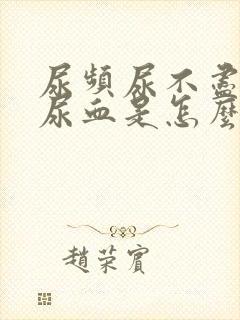 尿頻尿不盡
尿血是怎麼
趙荣賓